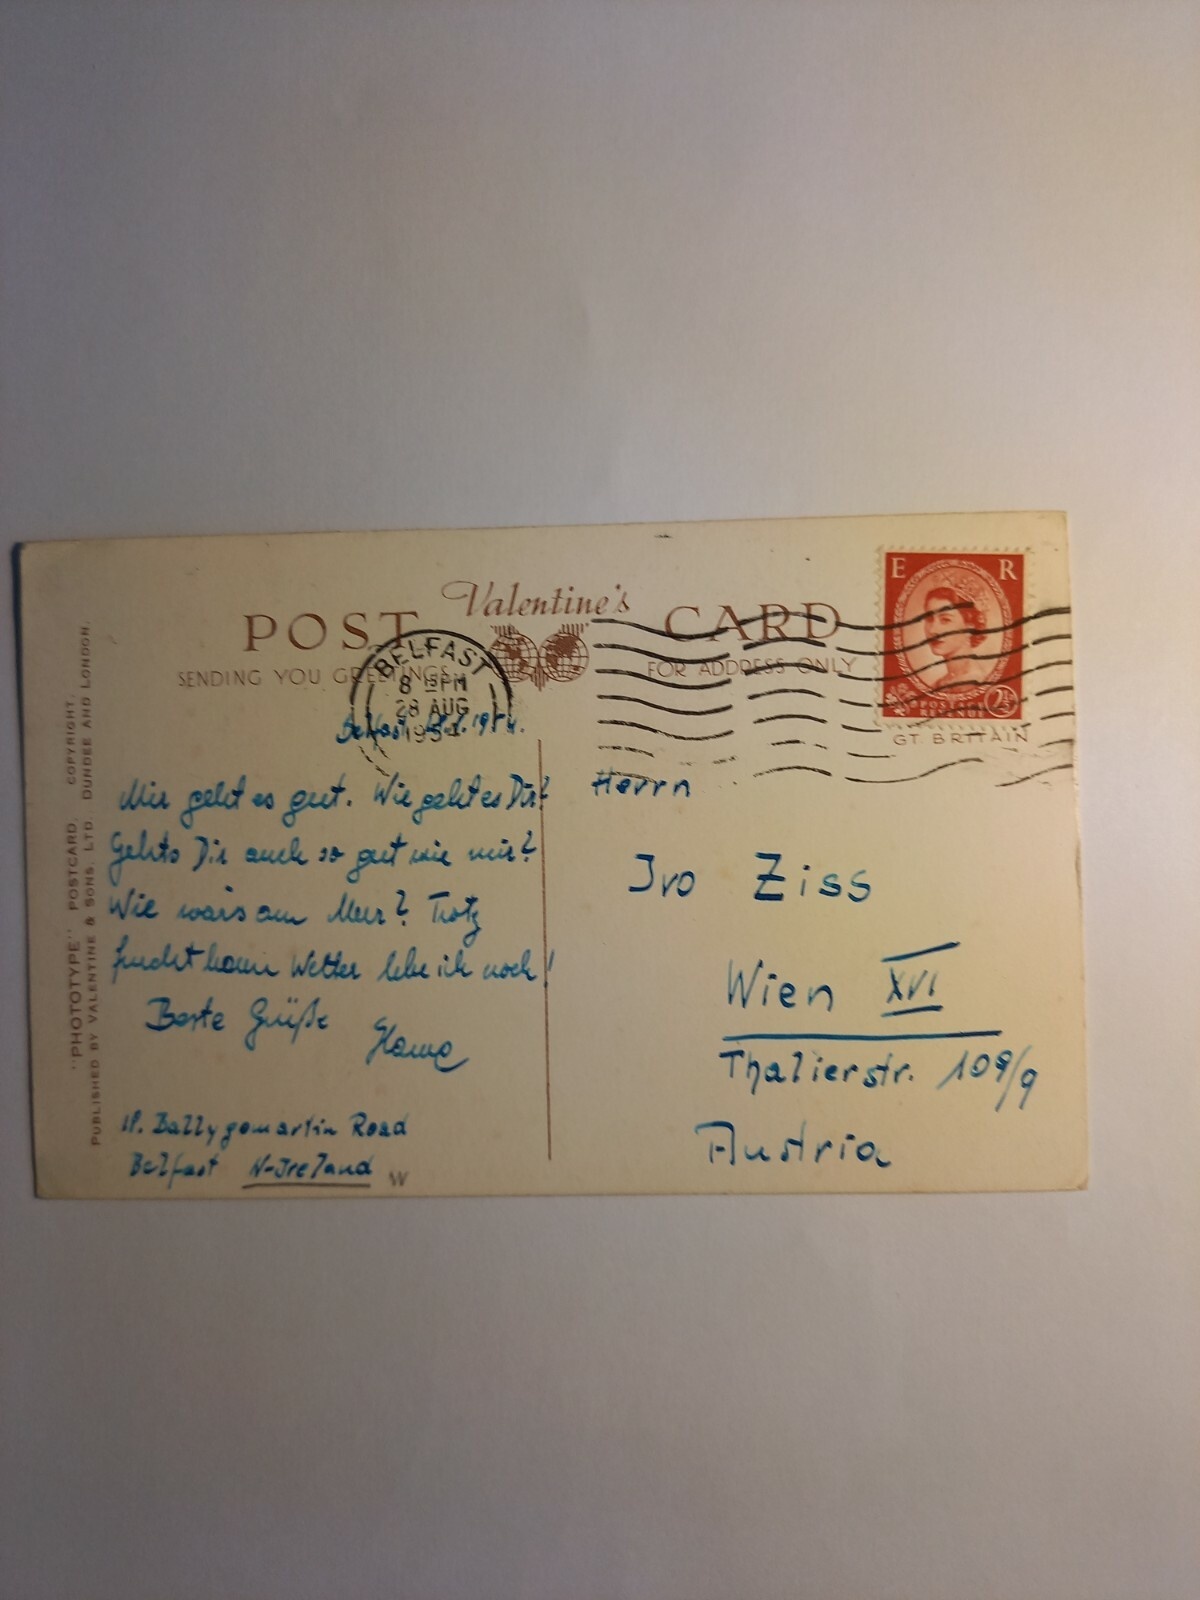 Valentine's
POST CARD
SENDING YOU GREETINGS FOR ADDRESS ONLY
E R
POSTAGE
REVENUE
2½D
GT BRITAIN
BELFAST
8 15 PM
28 AUG
195
Belfast 1954.
Mir geht es gut. Wie geht es Dir?
Gehts Dir auch so gut wie mir?
Wie wars am Meer? Trotz
Wetter lebe ich noch!
Beste Grüße
18. Ballygomartin Road
Belfast N-Ireland
W
Herrn
Ivo Ziss
Wien XVI
Thalierstr. 109/9
Austria
"PHOTOTYPE" POSTCARD. COPYRIGHT.
PUBLISHED BY VALENTINE & SONS. LTD. DUNDEE AND LONDON.